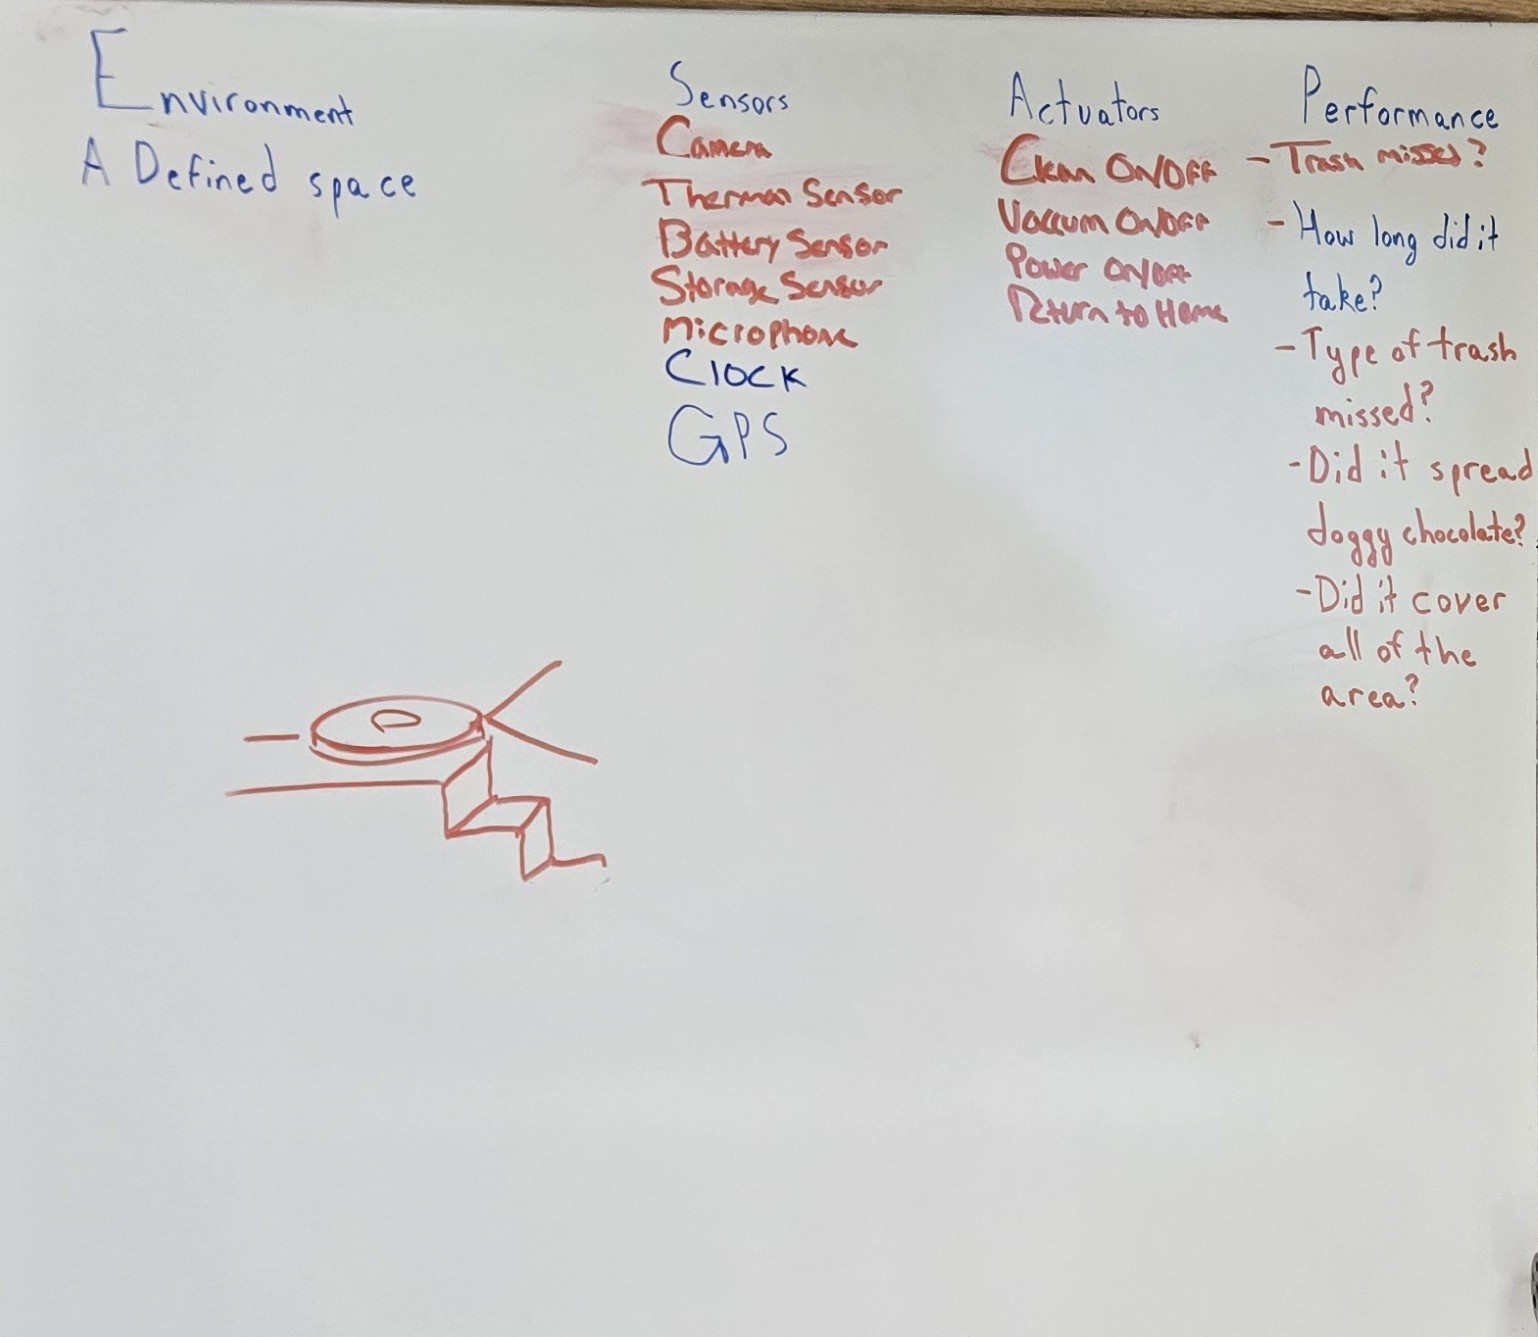 Environment
A Defined space
Sensors
Camera
Thermal Sensor
Battery Sensor
Storage Sensor
Microphone
Clock
GPS
Actuators
Clean ON/OFF
Vaccum ON/OFF
Power ON/OFF
Return to Home
Performance
- Trash missed?
- How long did it
take?
- Type of trash
missed?
- Did it spread
doggy chocolate?
- Did it cover
all of the
area?